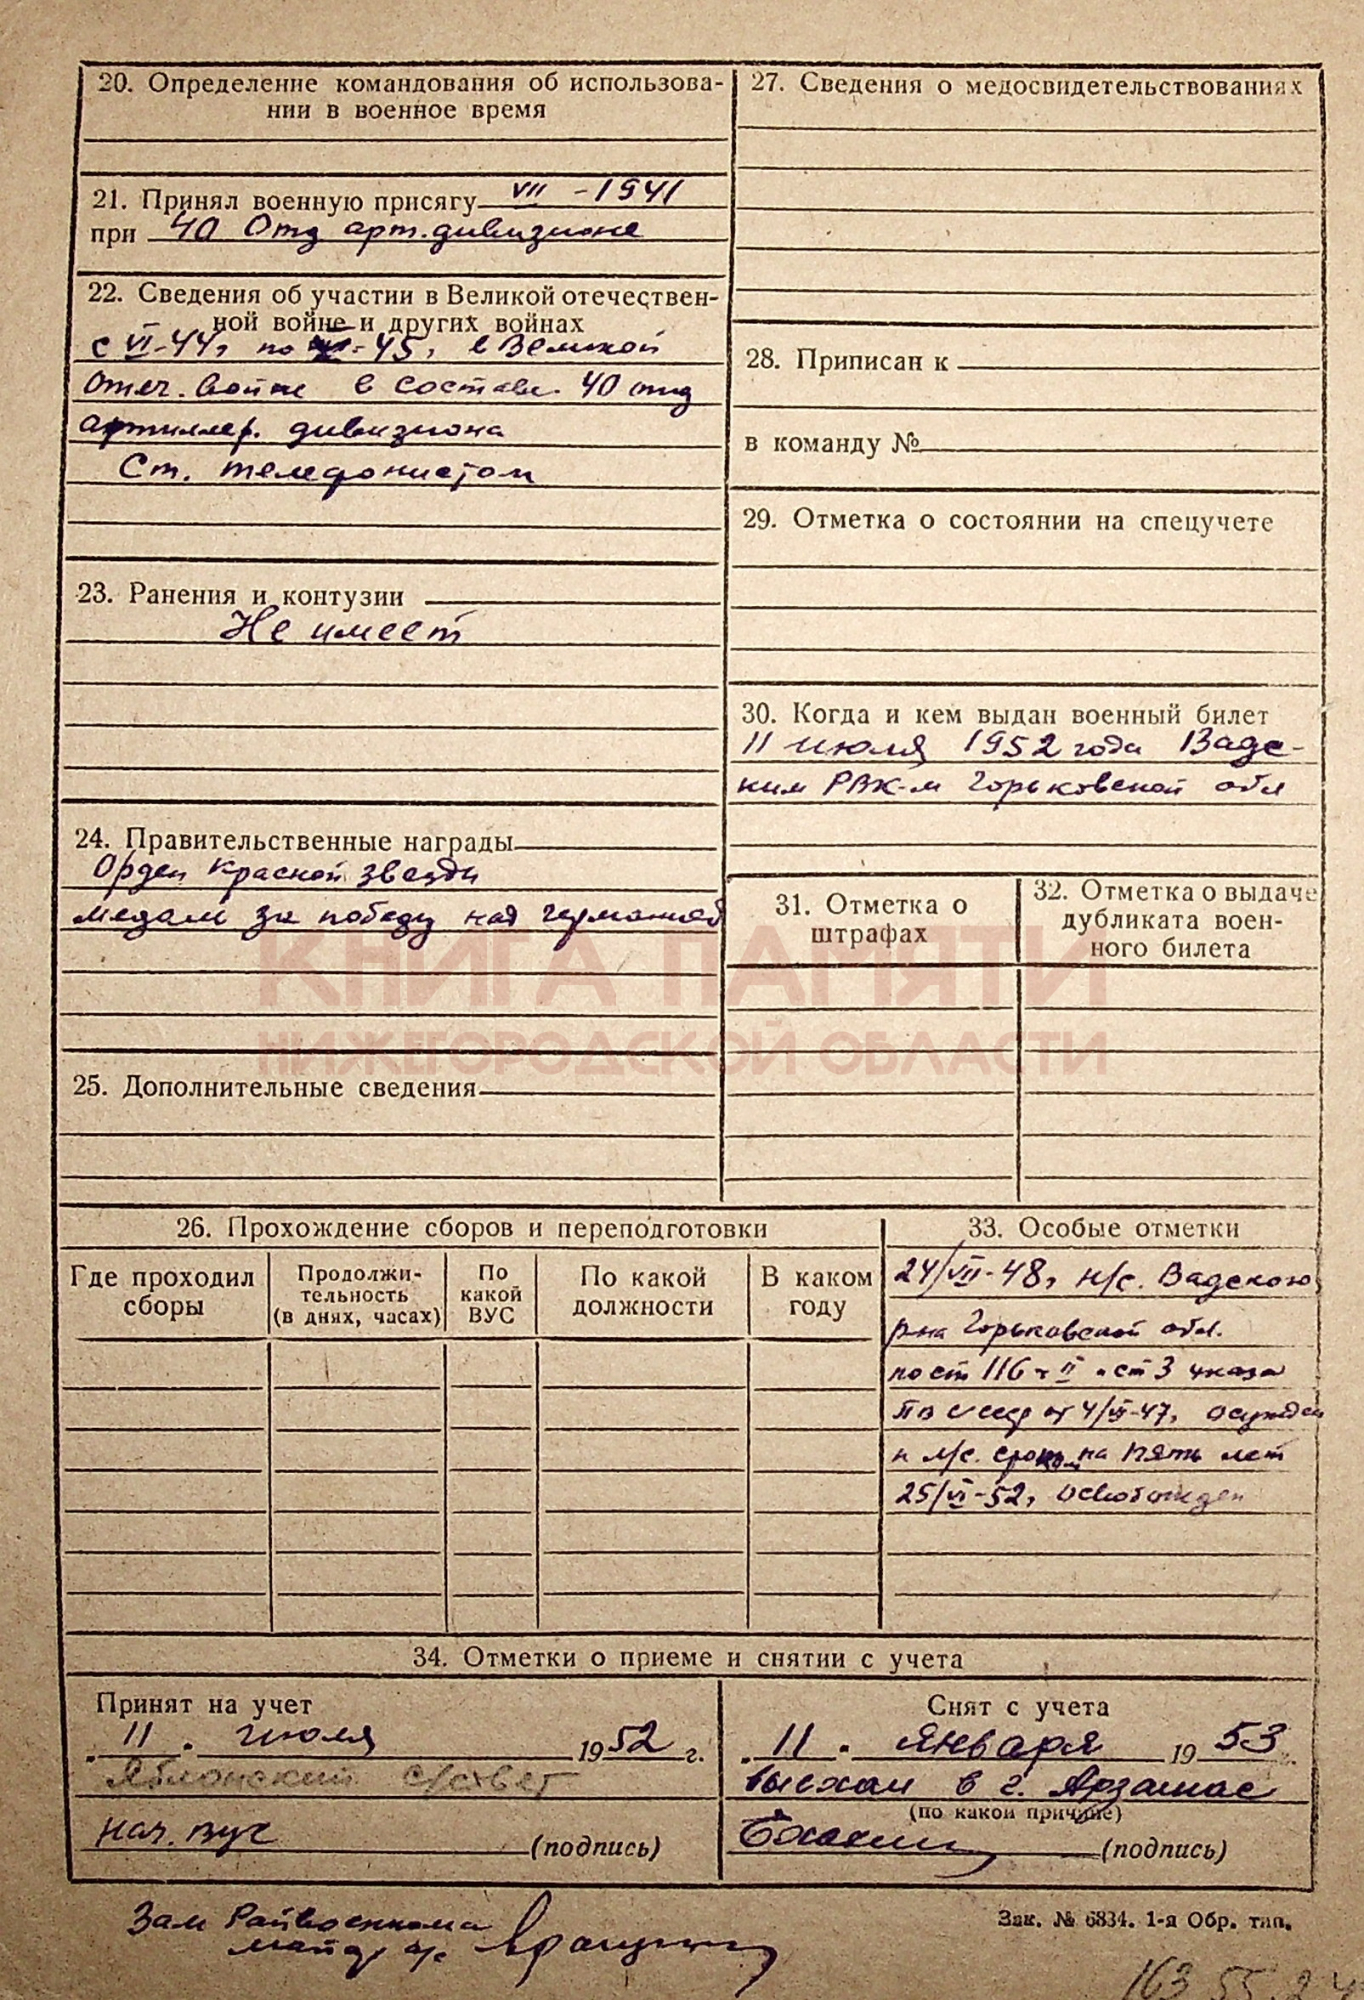 20. Определение командования об использова-
нии в военное время
21. Принял военную присягу VII - 1941
при 40 Отд арт. дивизионе
22. Сведения об участии в Великой отечествен-
ной войне и других войнах
с VI-44г по -45г в Великой
Отеч. войне в составе 40 отд
артиллер. дивизиона
Ст. телефонистом
23. Ранения и контузии
Не имеет
24. Правительственные награды
Орден Красной звезды
медаль за победу над германией
25. Дополнительные сведения
27. Сведения о медосвидетельствованиях
28. Приписан к
в команду №
29. Отметка о состоянии на спецучете
30. Когда и кем выдан военный билет
11 июля 1952 года Вадс-
ким РВК-м Горьковской обл
31. Отметка о
штрафах
32. Отметка о выдаче
дубликата воен-
ного билета
КНИГА ПАМЯТИ
НИЖЕГОРОДСКОЙ ОБЛАСТИ
26. Прохождение сборов и переподготовки
Где проходил
сборы
Продолжи-
тельность
(в днях, часах)
По
какой
ВУС
По какой
должности
В каком
году
33. Особые отметки
24/VII-48г н/с. Вадского
р-на Горьковской обл.
по ст 116 ч II и ст 3 указа
ПВ СССР от 4/VI-47г осужден
к л/с. сроком на пять лет
25/VI-52г освобожден
34. Отметки о приеме и снятии с учета
Принят на учет
„11“ июля 1952 г.
Яблонский с/совет
нач. вуч (подпись)
Снят с учета
„11“ января 1953 г.
выехал в г. Арзамас
(по какой причине)
(подпись)
Зам Райвоенкома
майор а/с
Зак. № 6834. 1-я Обр. тип.